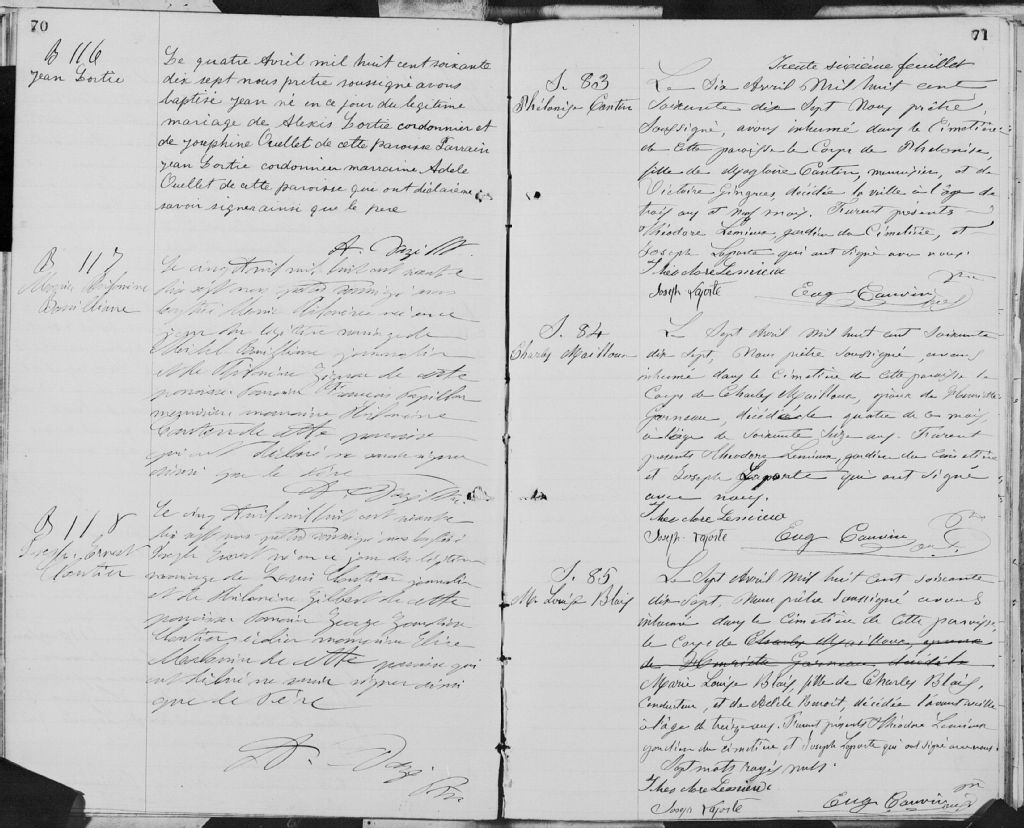 70
B 116
Jean Lortie
Le quatre Avril mil huit cent soixante
dix sept nous prêtre soussigné avons
baptisé Jean né en ce jour du légitime
mariage de Alexis Lortie cordonnier et
de Josephine Ouellet de cette paroisse Parrain
Jean Lortie cordonnier marraine Adèle
Ouellet de cette paroisse qui ont déclaré ne
savoir signer ainsi que le père
B 117
Le cinq Avril mil huit cent soixante
dix sept nous prêtre soussigné avons
jour du légitime mariage de
journalier
et de cette
paroisse Parrain François
menuisier marraine
de cette paroisse
qui ont déclaré ne savoir signer
ainsi que le Père
B 118
Joseph Ernest
Cloutier
Le cinq Avril mil huit cent soixante
dix sept nous prêtre soussigné avons baptisé
Joseph Ernest né en ce jour du légitime
mariage de Louis Cloutier journalier
et de Philomène Gilbert de cette
paroisse Parrain George
Cloutier écolier marraine
de cette paroisse qui
ont déclaré ne savoir signer ainsi
que le Père
71
Trente sixième feuillet
S. 83
Phélonise Cantin
Le Six Avril Mil huit cent
Soixante dix Sept Nous prêtre,
Soussigné, avons inhumé dans le Cimetière
de Cette paroisse le Corps de Phelonise,
fille de Magloire Cantin, menuisier, et de
Victoire Gingras, décédée en ville à l'âge de
trois ans et neuf mois. Furent présents
Théodore Lemieux, gardien du Cimetière, et
Joseph Laporte qui ont signé avec nous.
Theodore Lemieux
Joseph Laporte
Eug Cauvin
S. 84
Charles Mailloux
Le Sept Avril mil huit cent Soixante
dix Sept, Nous prêtre Soussigné, avons
inhumé dans le Cimetière de Cette paroisse le
Corps de Charles Mailloux, époux de Henriette
Garneau, décédé le quatre de ce mois,
à l'âge de Soixante Seize ans. Furent
présents Théodore Lemieux, gardien du Cimetière
et Joseph Laporte qui ont signé
avec nous.
Theodore Lemieux
Joseph Laporte
Eug Cauvin
S. 85
M. Louise Blais
Le Sept Avril mil huit Cent soixante
dix Sept, Nous prêtre Soussigné avons
inhumé dans le Cimetière de Cette paroisse,
le Corps de Charles Mailloux, époux
de Henriette Garneau décédé le
Marie Louise Blais, fille de Charles Blais,
Conducteur, et de Adèle Benoit, décédée l'avant veille
à l'âge de treize ans. Furent présents Théodore Lemieux
gardien du cimetière et Joseph Laporte qui ont signé avec nous.
Sept mots rayés nuls.
Theodore Lemieux
Joseph Laporte
Eug Cauvin